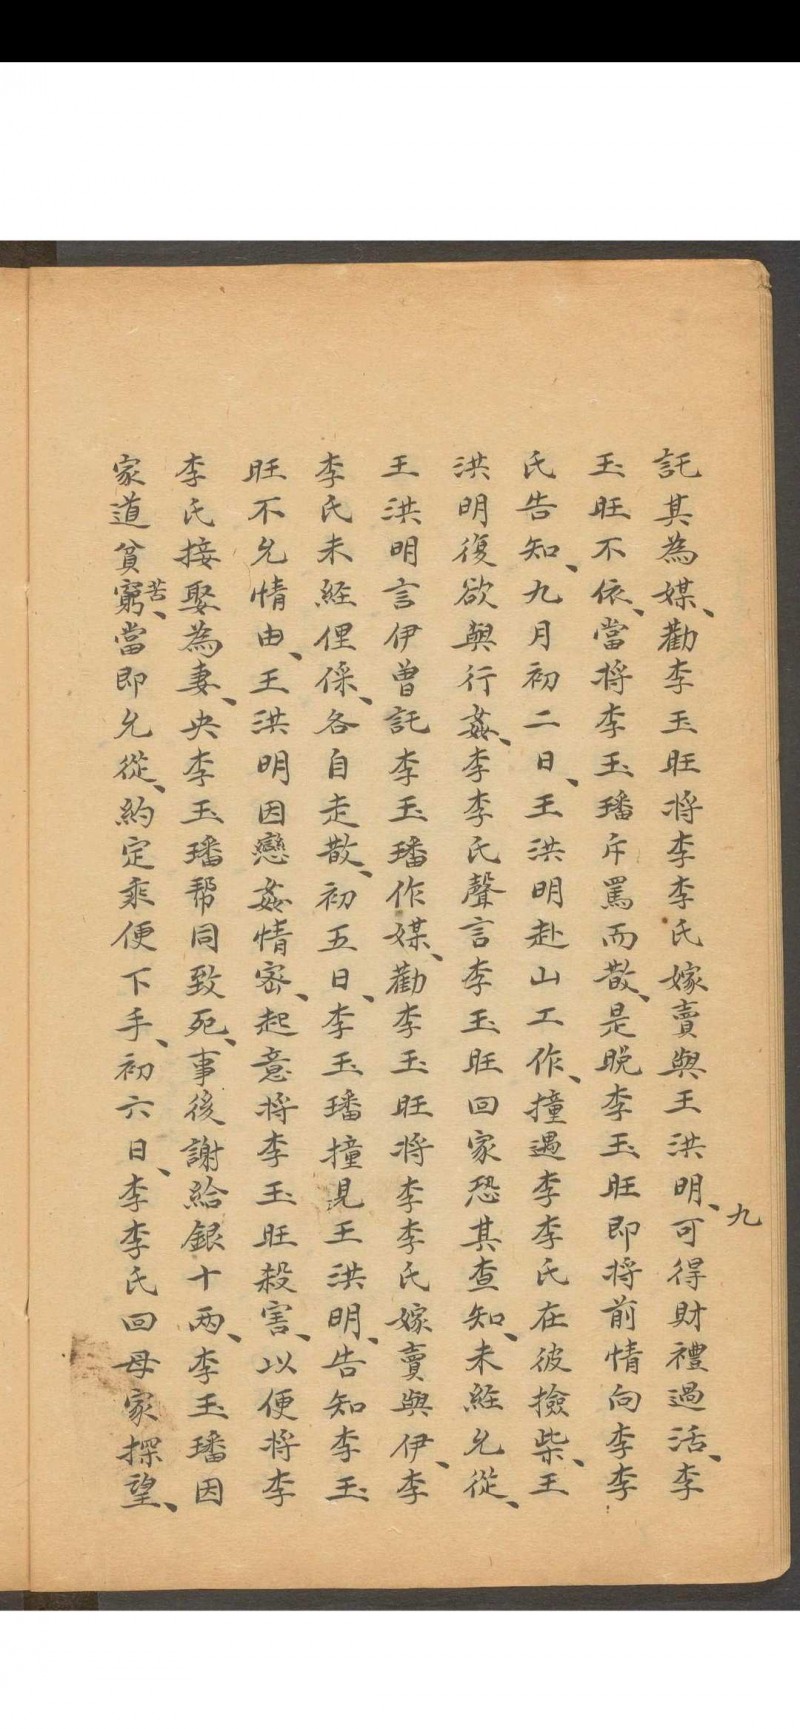 託其為媒、勸李玉旺將李李氏嫁賣與王洪明、可得財禮過活、李
玉旺不依、當將李玉璠斥罵而散、是晚李玉旺即將前情向李李
氏告知、九月初二日、王洪明赴山工作、撞遇李李氏在彼撿柴、王
洪明復欲與行姦、李李氏聲言李玉旺回家恐其查知、未經允從、
王洪明言伊曾託李玉璠作媒、勸李玉旺將李李氏嫁賣與伊、李
李氏未經俚倸、各自走散、初五日、李玉璠撞見王洪明、告知李玉
旺不允情由、王洪明因戀姦情密、起意將李玉旺殺害、以便將李
李氏接娶為妻、央李玉璠帮同致死、事後謝給銀十兩、李玉璠因
家道貧窮苦、當即允從、約定乘便下手、初六日、李李氏回母家探望、
九